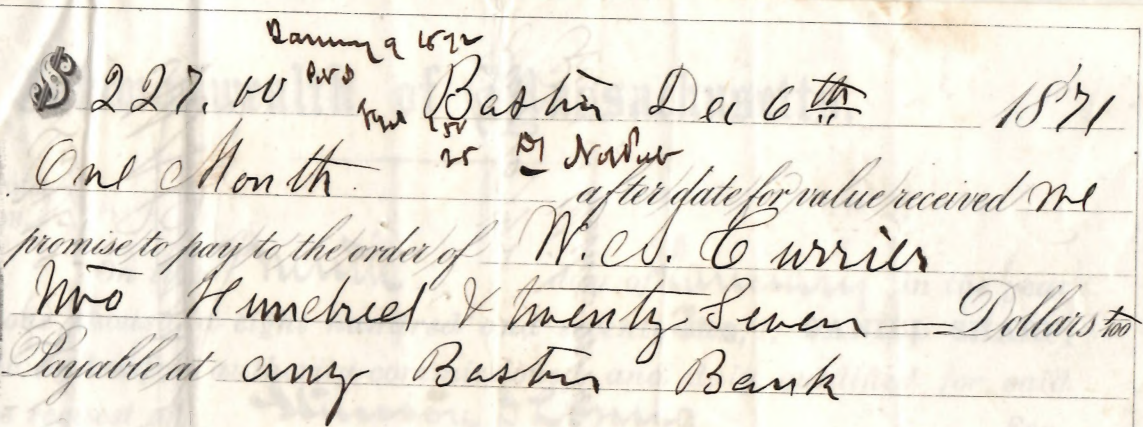 January 9 1872
$ 227.00 Boston Dec 6th 1871
One Month after date for value received we
promise to pay to the order of W. A. Currier
Two Hundred & twenty Seven — Dollars
Payable at any Boston Bank